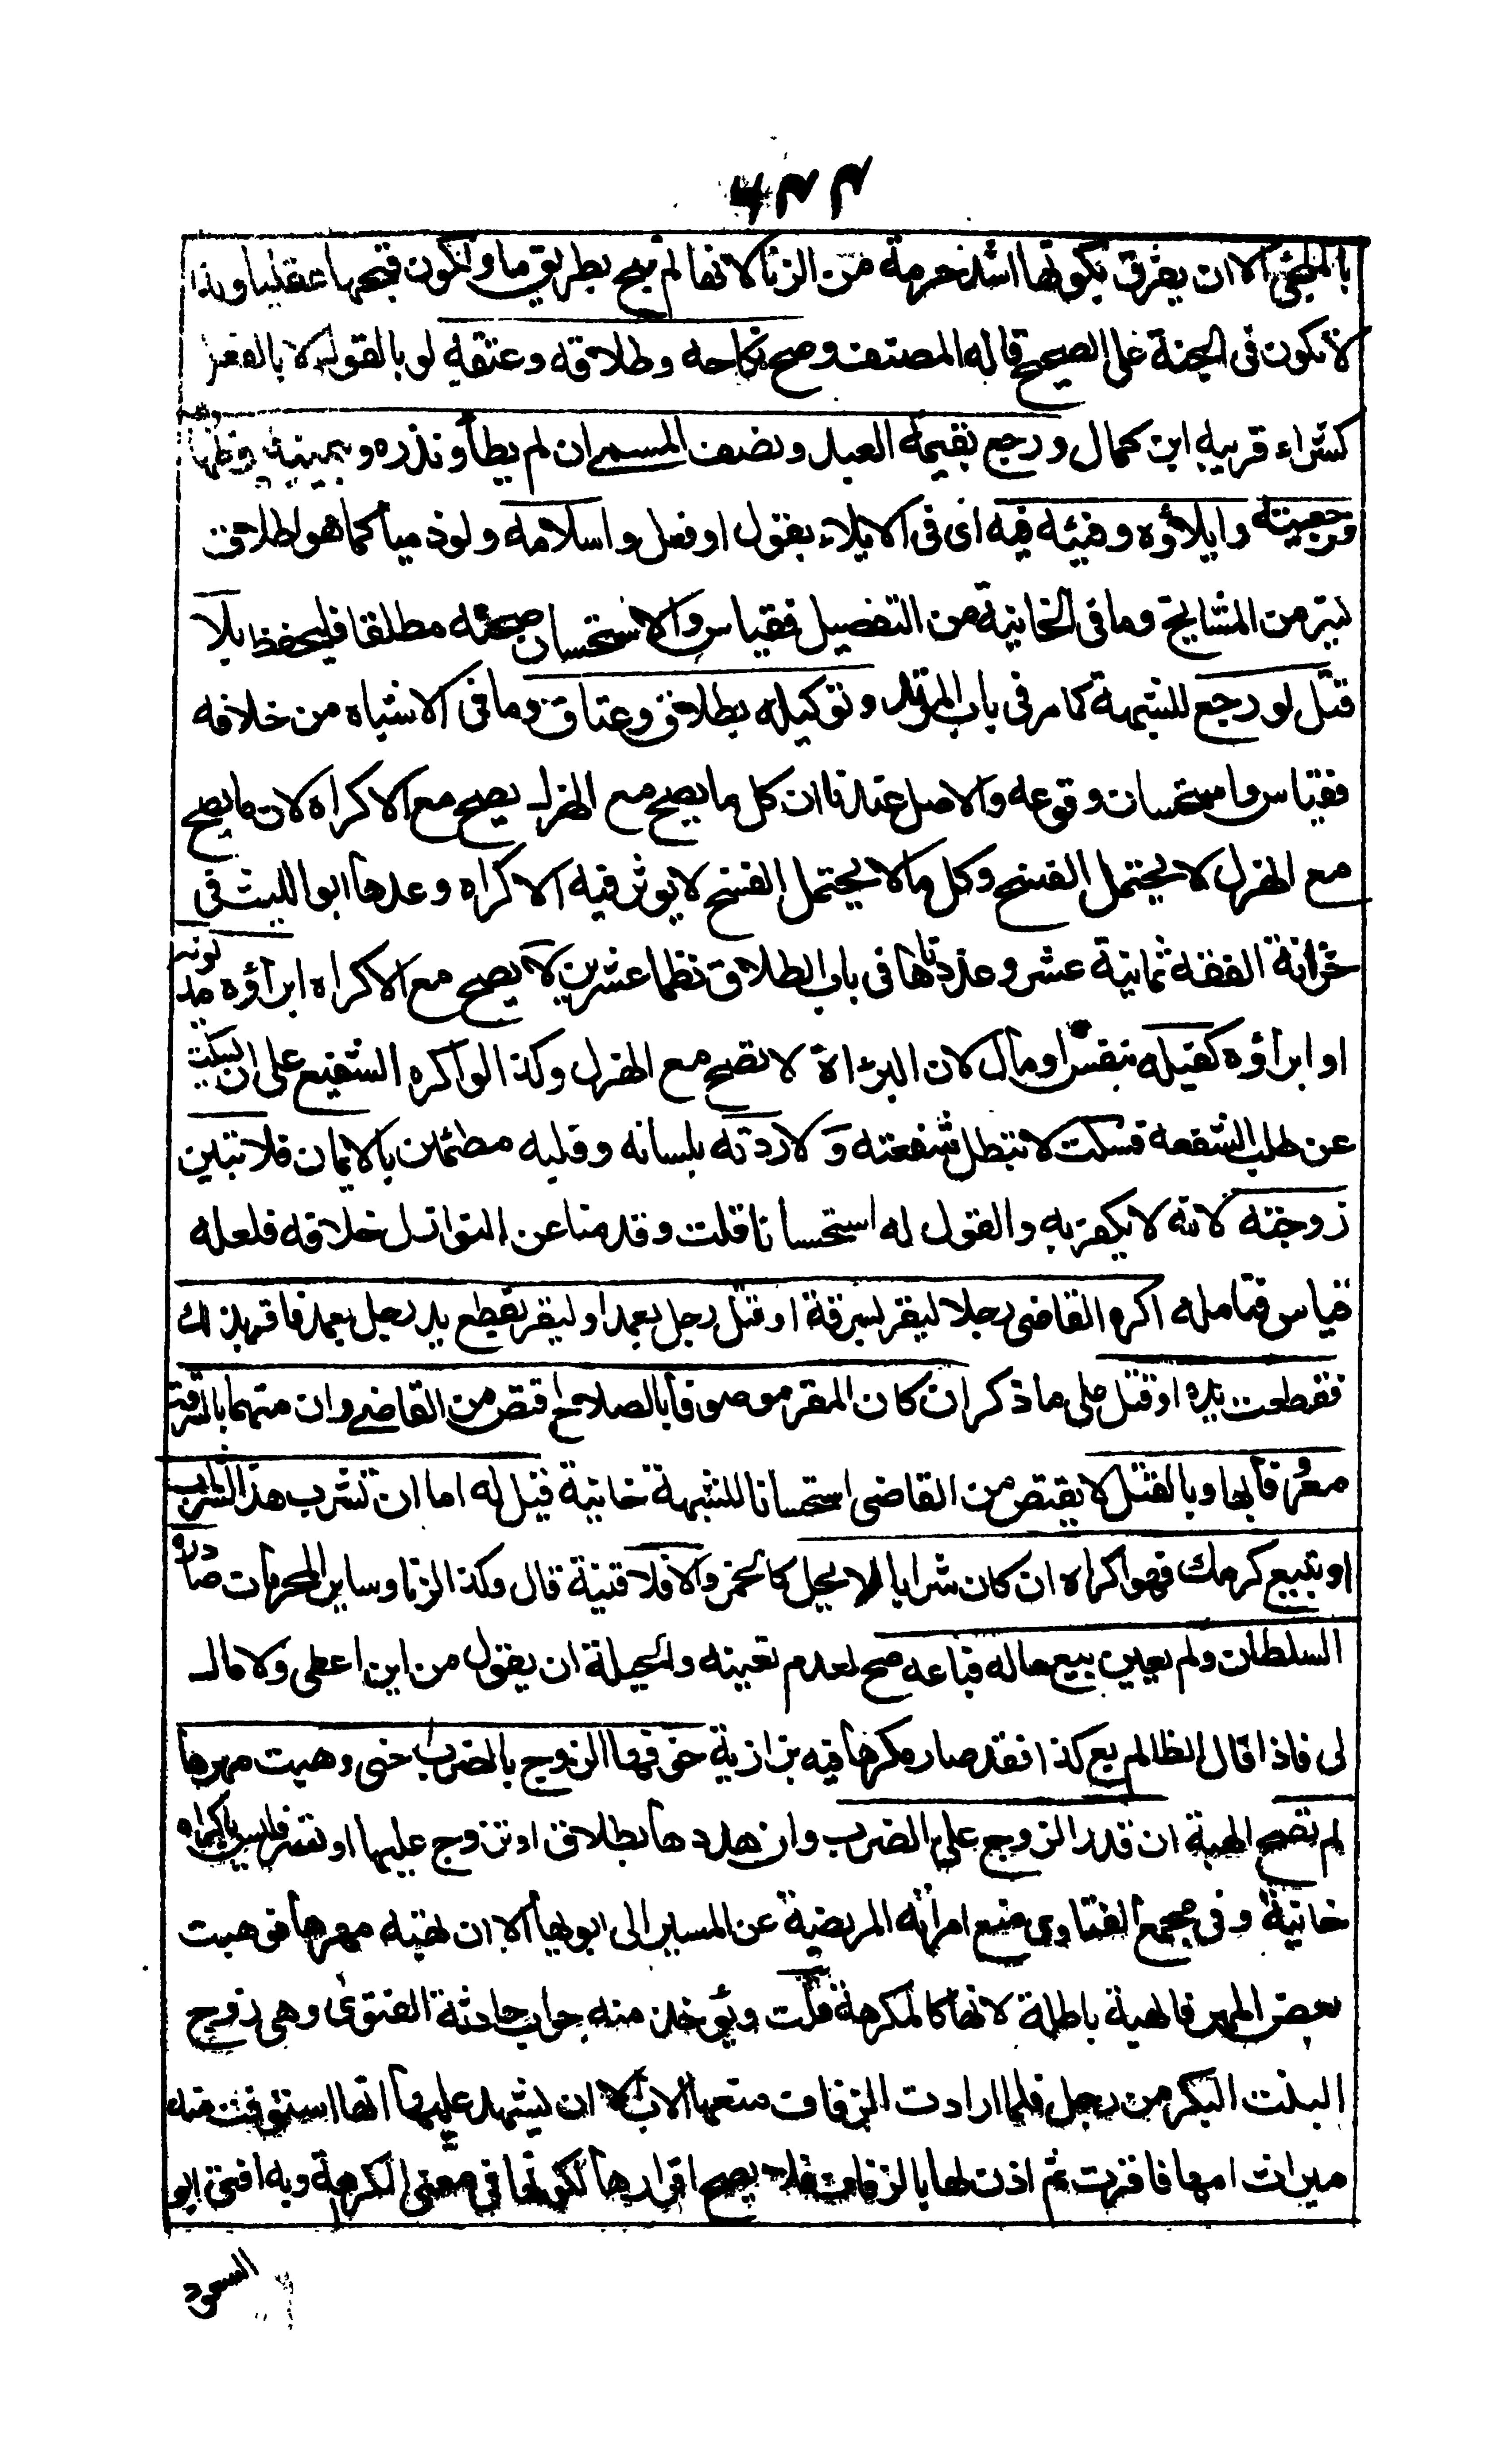 بالملجئ الا ان يفرق بكونها اشد حرمة من الزنا لانها لم تبح بطريق ما ولكون قبحها عقليا ولذا
لا تكون فى الجنة على الصحيح قاله المصنف وصح نكاحه وطلاقه وعتقه لو بالقول لا بالفعل
كشراء قريبه ابن كمال ورجع بقيمة العبد ونصف المسمى ان لم يطأ ونذره ويمينه وظهاره
ورجعيته وايلاؤه وفيئه فيه اى فى الايلاء بقول او فعل واسلامه ولو ذميا كما هو اطلاق
كثير من المشايخ وما فى الخانية من التفصيل فقياس والاستحسان صحته مطلقا فليحفظ بلا
قتل لو رجع للشبهة كما مر فى باب المرتد وتوكيله بطلاق وعتاق وما فى الاشباه من خلافه
فقياس واستحسان وقوعه والاصل عندنا ان كل ما يصح مع الهزل يصح مع الاكراه لان ما يصح
مع الهزل لا يحتمل الفسخ وكل ما لا يحتمل الفسخ لا يوثر فيه الاكراه وعدها ابو الليث فى
خزانة الفقه ثمانية عشر وعددناها فى باب الطلاق نظما عشرين لا يصح مع الاكراه ابراؤه مديونه
او ابراؤه كفيله بنفس او مال لان البراة لا تصح مع الهزل وكذا لو اكره الشفيع على ان يسكت
عن طلب الشفعة فسكت لا تبطل شفعته و لا ردته بلسانه وقلبه مطئمن بالايمان فلا تبين
زوجته لانه لا يكفر به والقول له استحسانا قلت وقدمنا عن النوازل خلافه فلعله
قياس فتامله اكره القاضى رجلا ليقر بسرقة او قتل رجل بعمد او ليقر بقطع يد رجل بعمد فاقر بذلك
فقطعت يده او قتل على ما ذكر ان كان المقر موصوفا بالصلاح اقتص من القاضى وان متهما بالسرقة
معروفا بها وبالقتل لا يقتص من القاضى استحسانا للشبهة خانية قيل له اما ان تشرب هذا الشراب
او تبيع كرمك فهو اكراه ان كان شرابا لا يحل كالخمر والا فلا قنية قال وكذا الزنا وساير المحرمات صادره
السلطان ولم يعين بيع ماله فباعه صح لعدم تعينه والحيلة ان يقول من اين اعطى ولا مال
لى فاذا قال الظالم بع كذا فقد صار مكرها فيه بزازية خوفها الزوج بالضرب حتى وهبت مهرها
لم تصح الهبة ان قدر الزوج على الضرب وان هددها بطلاق او تزوج عليها او تسر فليس باكراه
خانية وفى مجمع الفتاوى منع امراته المريضة عن المسير الى ابويها الا ان تهبه مهرها فوهبت
بعض المهر فالهبة باطلة لانها كالمكرهة قلت ويؤخذ منه جواب حادثة الفتوى وهى زوج
البنت البكر من رجل فلما ارادت الزفاف منعها الاب الا ان يشهد عليها انها استوفت منه
ميراث امها فاقرت ثم اذن لها بالزفاف فلا يصح اقرارها لكونها فى معنى المكرهة وبه افتى ابو
السعود